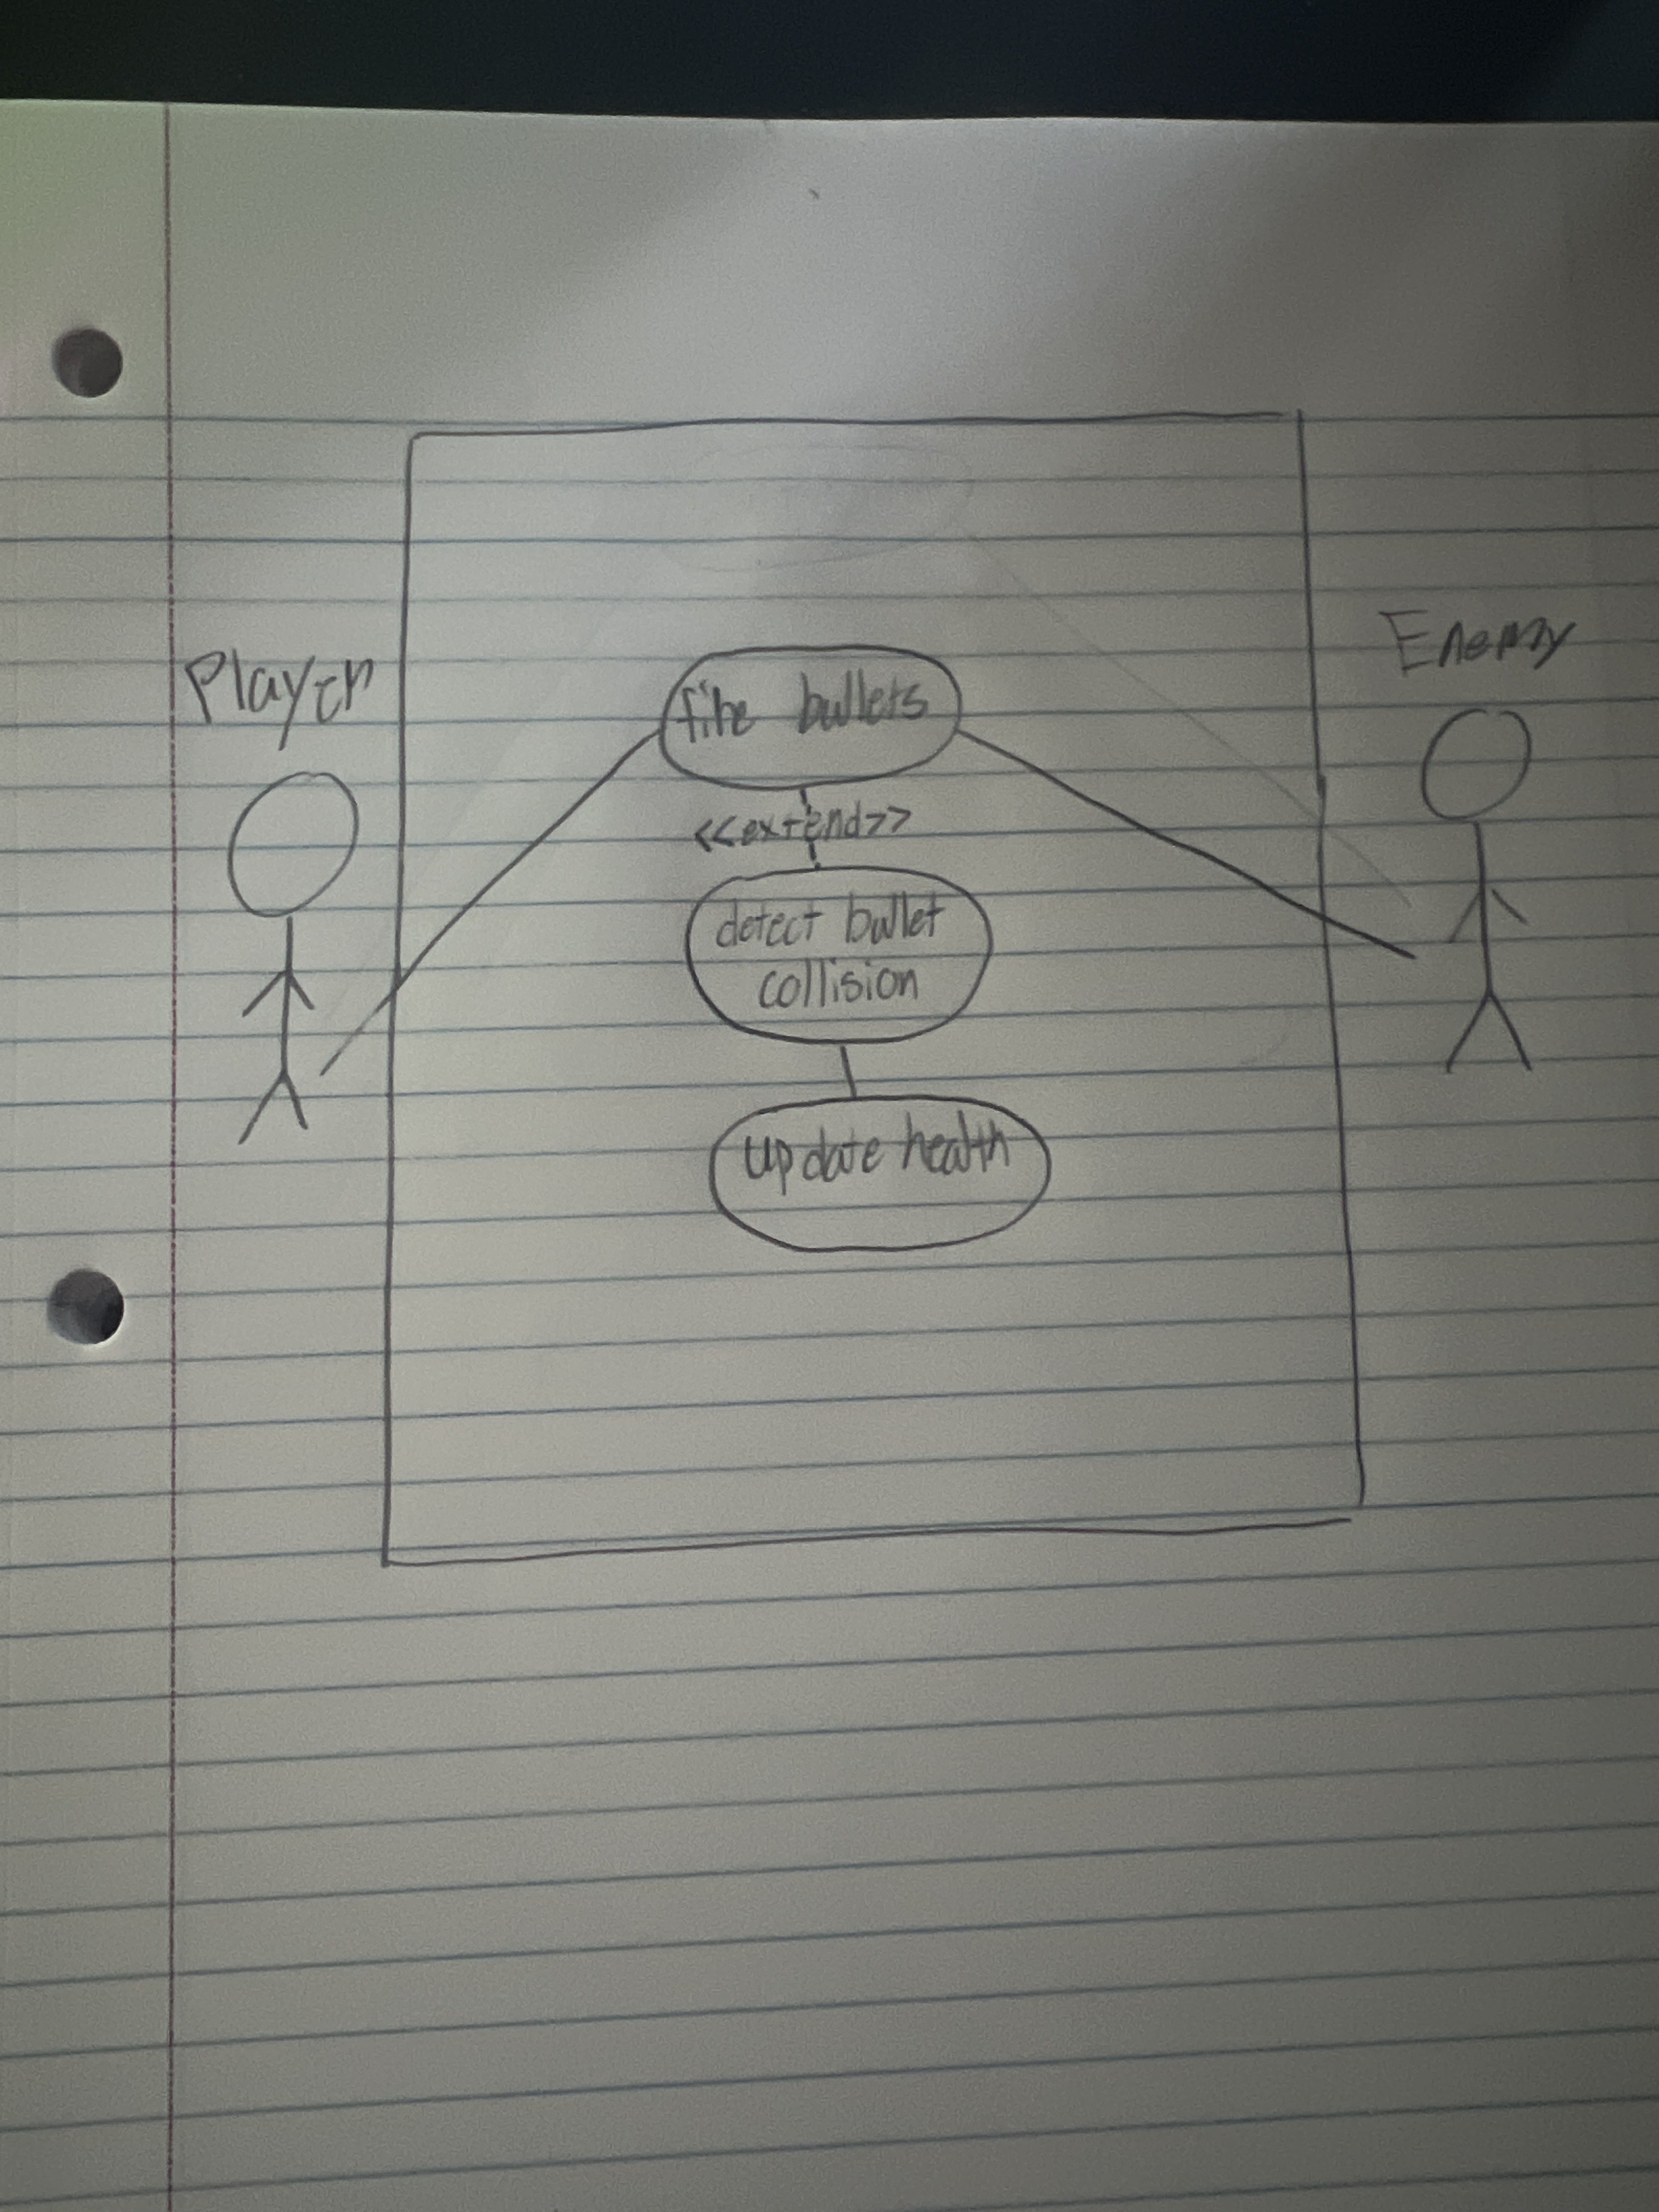 Player
Enemy
fire bullets
<<extend>>
detect bullet
collision
update health